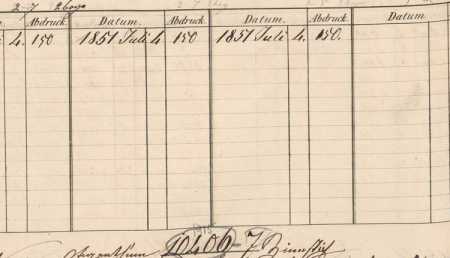 2-7
Abdruck. Datum. Abdruck. Datum. Abdruck. Datum.
4. 150. 1851 Juli 4 150 1851 Juli 4. 150.
10406-7 Zinnstich